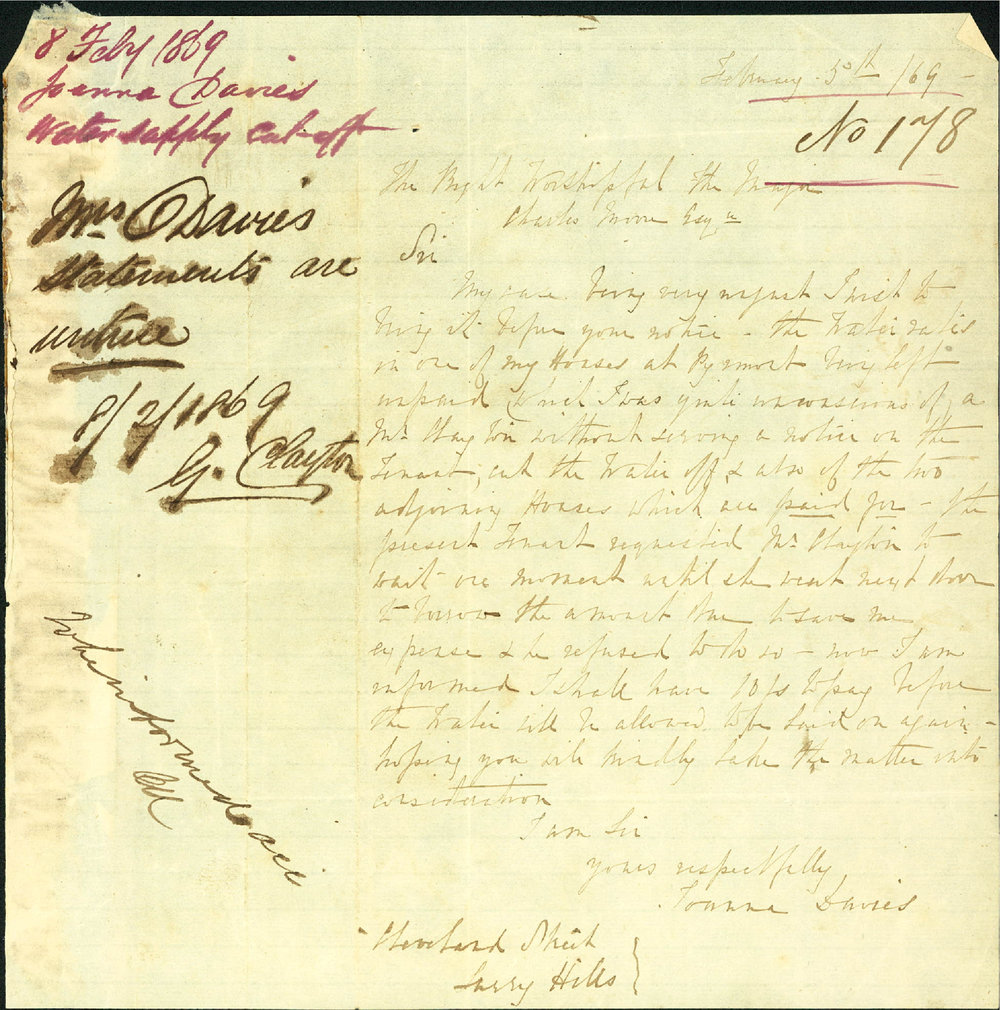 8 Feby 1869
Joanna Davies
Water supply cut off
Mrs Davies
statements are
untrue
8/2/1869
G. Clayton
February 5th /69 -
No 178
The Right Worshipful The Mayor
Charles Moore Esqre
Sir
My case being very unjust I wish to
bring it before your notice - the Water rates
in one of my Houses at Pyrmont being left
unpaid (which I was quite unconscious of) a
Mr Clayton without serving a notice on the
Tenant, cut the Water off & also of the two
adjoining Houses which are paid for - the
present Tenant requested Mr Clayton to
wait one moment until she went next door
to borrow the amount due to save me
expense & he refused to do so - now I am
informed I shall have 10/s to pay before
the Water will be allowed to be laid on again -
hoping you will kindly take the matter into
consideration
I am Sir
yours respectfully
Joanna Davies
Cleveland Street
Surry Hills